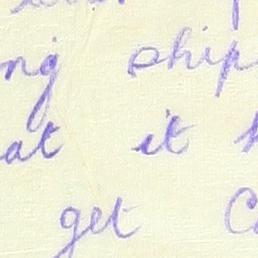 ng ship
at it
get C